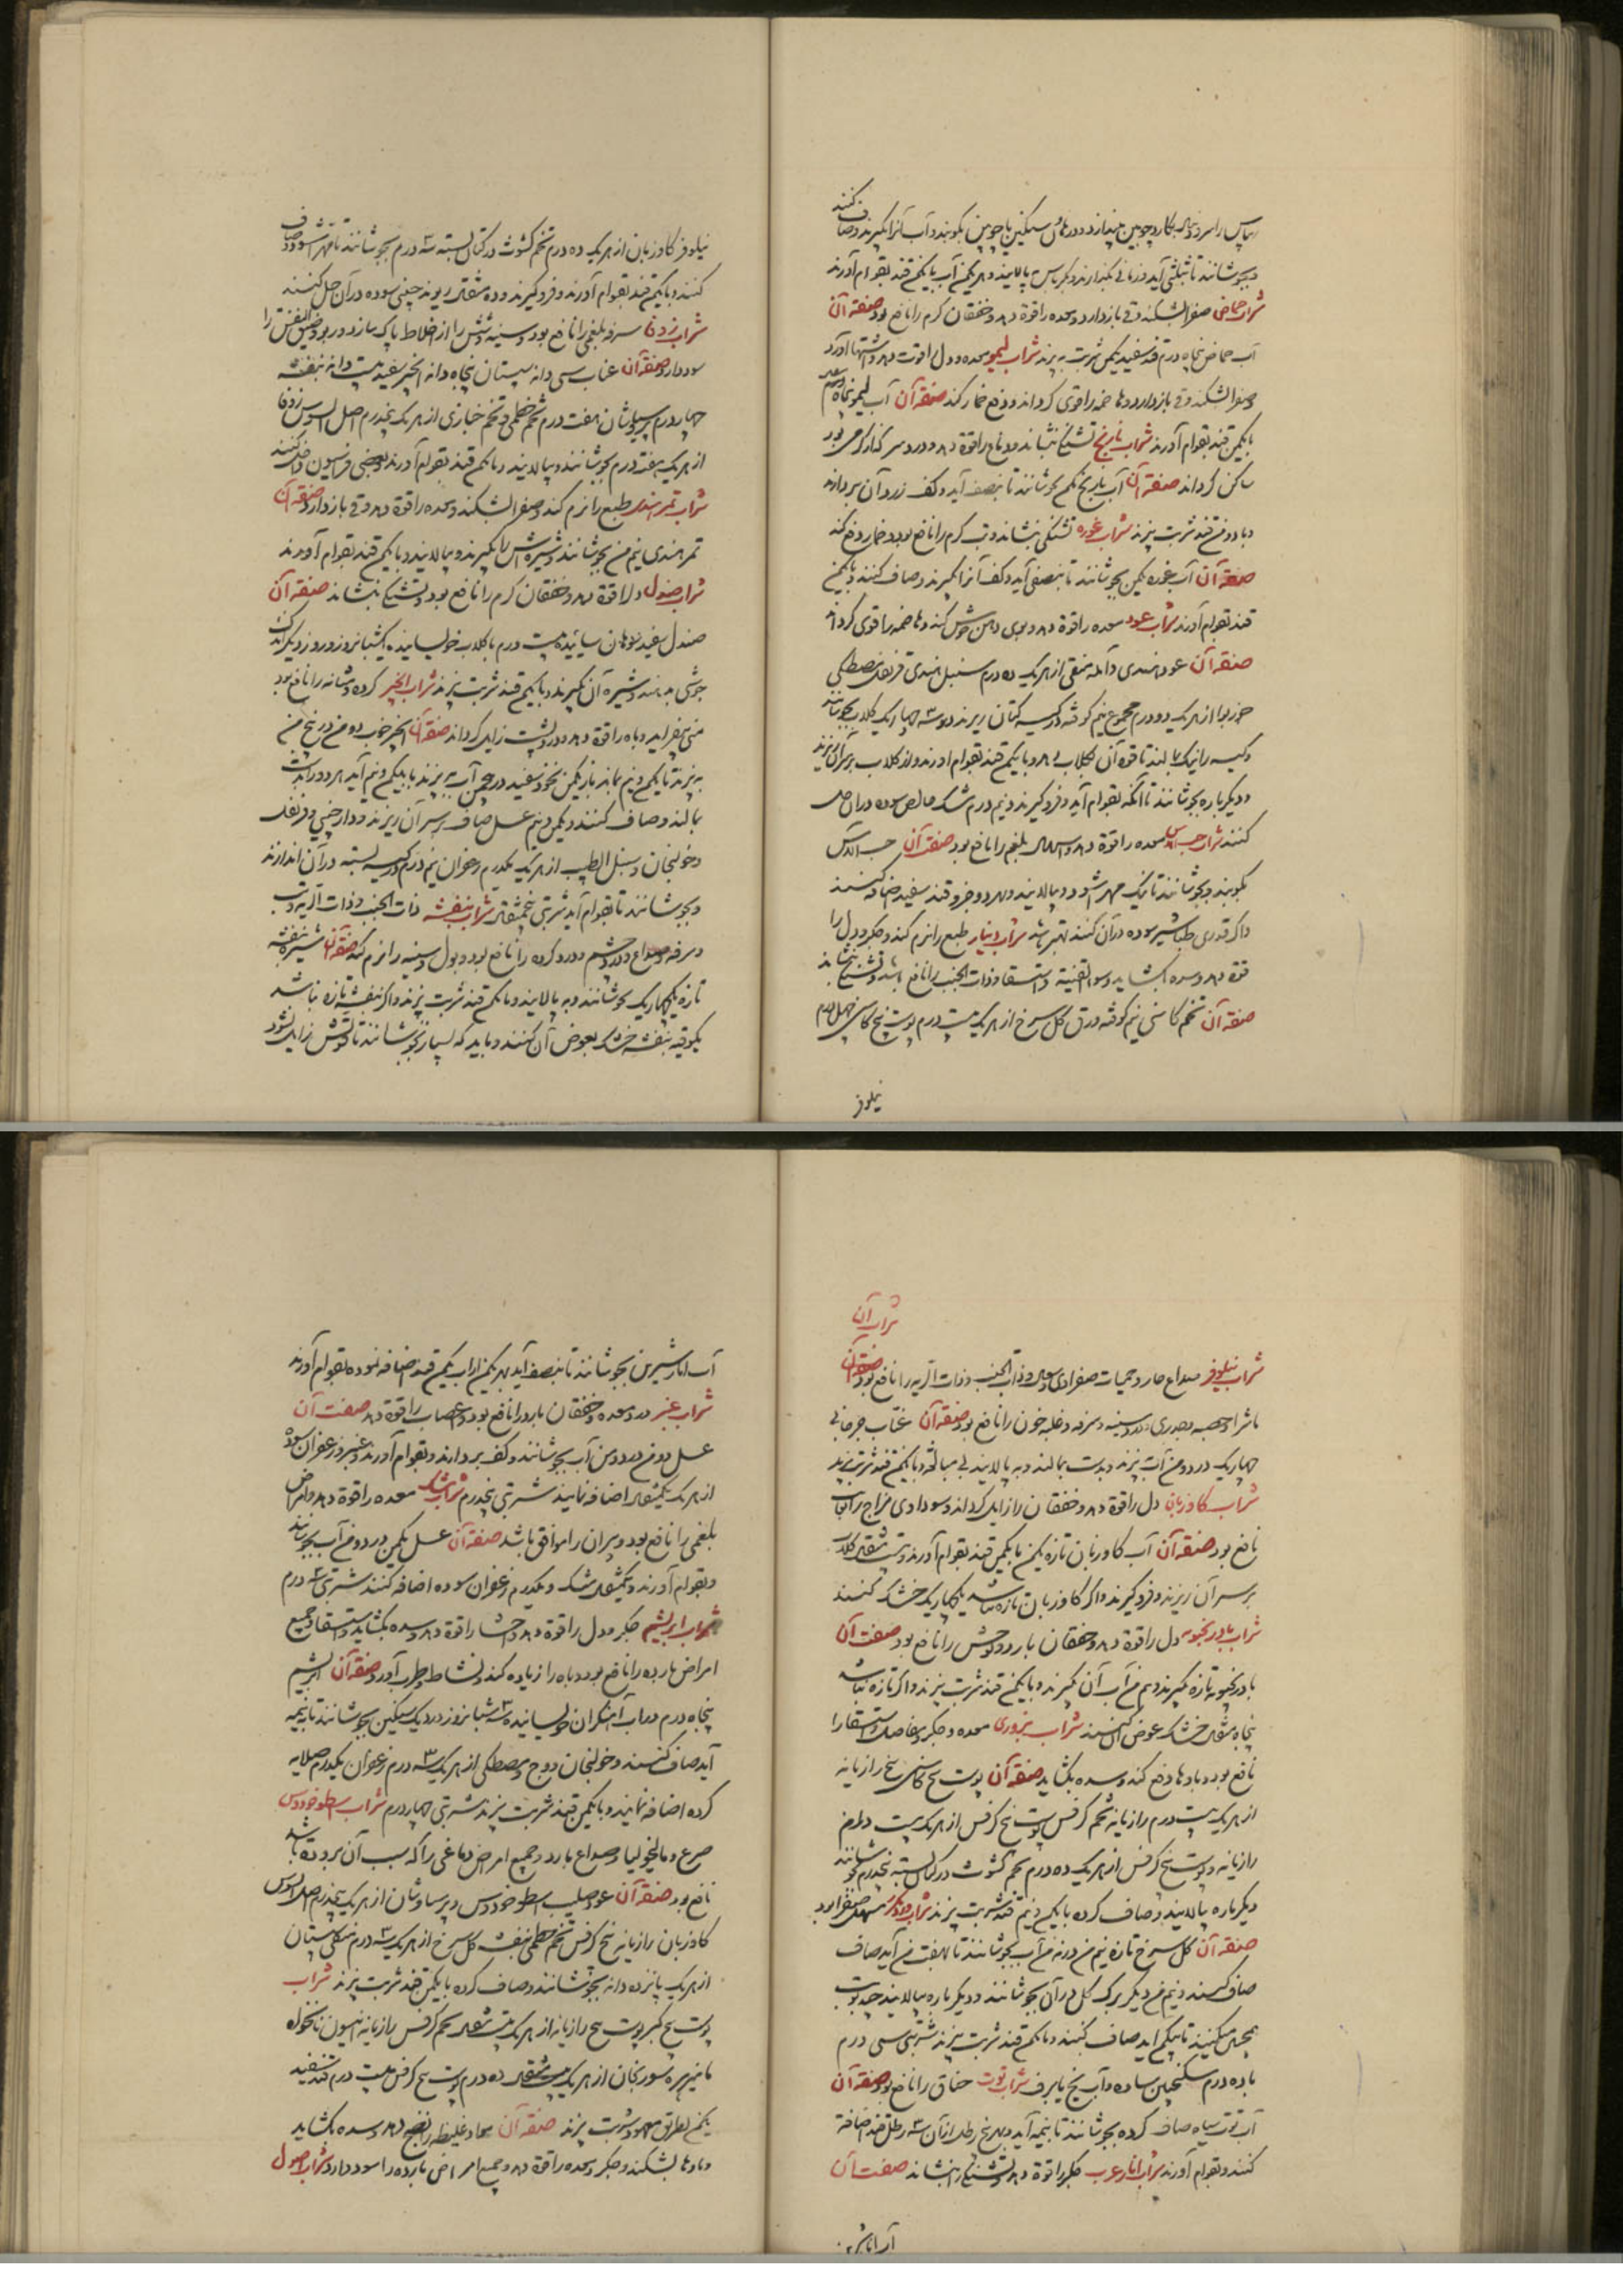 شراب حماض صفرا بشکند و قی بازدارد و معده را قوة دهد و خفقان گرم را نافع بود صفة آن
آب حماض پنجاه درم قند سفید یکمن شربت پزند شراب لیمو معده و دل را قوت دهد و اشتها آورد
و صفرا بشکند و قی بازدارد و هاضمه را قوی گرداند و دفع خمار کند صفة آن آب لیمو پنجاه درم
با یکمن قند بقوام آورند شراب نارنج تشنگی بنشاند و دماغ را قوة دهد و درد سر که از گرمی بود
ساکن گرداند صفة آن آب نارنج یکمن بجوشانند تا بنصف آید و کف زرد آن بردارند
و با دو من قند شربت پزند شراب غوره تشنگی بنشاند و تب گرم را نافع بود و خمار دفع کند
صفة آن آب غوره یکمن بجوشانند تا بنصفی آید و کف آنرا بگیرند و صاف کنند و با یکمن
قند بقوام آورند شراب عود معده را قوة دهد و بوی دهن خوش کند و هاضمه را قوی گرداند
صفة آن عود هندی و آمله منقی از هریک ده درم سنبل هندی قرنفل مصطکی
جوزبوا از هریک دو درم مجموع نیم کوفته در کیسه کتان ریزند و در سه چهاریک گلاب بجوشانند
و کیسه را نیک بمالند تا قوة آن بگلاب دهد و با یکمن قند بقوام آورند
و دیگرباره بجوشانند تا آنکه بقوام آید و فروگیرند و نیم درم مشک خالص سوده در آن حل
کنند شراب حب الآس معده را قوة دهد و اسهال بلغم را نافع بود صفت آن حب الآس
بکوبند و بجوشانند تا نیک مهرا شود و بپالایند و بهر دو جزو قند سفید اضافه کنند
و اگر قدری طباشیر سوده در آن کنند بهتر باشد شراب دینار طبع را نرم کند و جگر و دل را
قوة دهد و سده بگشاید و سوء القنیه و استسقا و ذات الجنب را نافع باشد و تشنگی بنشاند
صفة آن تخم کاسنی نیم کوفته ورق گل سرخ از هریک بیست درم پوست بیخ کاسنی چهل درم
نیلوفر
نیلوفر گاوزبان از هریک ده درم تخم کشوث در کتان بسته سه درم بجوشانند تا مهرا شود و صاف
کنند و با یکمن قند بقوام آورند و فروگیرند و ده مثقال ریوند چینی سوده در آن حل کنند
شراب زوفا سرفه بلغمی را نافع بود و سینه و شش را از اخلاط پاک سازد و ربو و ضیق النفس را
سود دارد صفة آن عناب سی دانه سپستان پنجاه دانه انجیر سفید بیست دانه بنفشه
چهار درم پرسیاوشان هفت درم تخم خطمی و تخم خبازی از هریک پنجدرم اصل السوس زوفا
از هریک هفت درم بجوشانند و بپالایند و با یکمن قند بقوام آورند و بعضی فراسیون داخل کنند
شراب تمر هندی طبع را نرم کند و صفرا بشکند و معده را قوة دهد و قی بازدارد صفة آن
تمر هندی نیم من بجوشانند و شیره اش را بگیرند و بپالایند و با یکمن قند بقوام آورند
شراب صندل دل را قوة دهد و خفقان گرم را نافع بود و تشنگی بنشاند صفة آن
صندل سفید بسوهان ساییده بیست درم با گلاب بخیسانند یکشبانروز و روز دیگر اندک
جوشی بدهند و شیره آن بگیرند و با یکمن قند شربت پزند شراب انجیر گرده و مثانه را نافع بود
منی بیفزاید و باه را قوة دهد و درد پشت زایل گرداند صفة آن انجیر خوب دو من در پنج من
بمالند و صاف کنند و یکمن و نیم عسل صاف بر سر آن ریزند و دارچینی و قرنفل
و خولنجان و سنبل الطیب از هریک یکدرم زعفران نیم درم در کیسه بسته در آن اندازند
و بجوشانند تا بقوام آید شربتی پنجمثقال شراب بنفشه ذات الجنب و ذات الریه و تب
و سرفه و صداع و درد چشم و درد گرده را نافع بود و بول و سینه را نرم کند صفة آن شیره بنفشه
تازه یکچهاریک بجوشانند و بپالایند و با یکمن قند شربت پزند و اگر بنفشه تازه نباشد
یکوقیه بنفشه خشک بعوض آن کنند و باید که بسیار نجوشانند تا قوتش زایل نشود
شراب آن
شراب نیلوفر صداع حار و حمیات صفراوی و ذات الجنب و ذات الریه را نافع بود صفة آن
ماشرا و حصبه و جدری و درد سینه و سرفه و غلبه خون را نافع بود صفة آن عناب جرجانی
چهاریک در دو من آب پزند و بدست بمالند و بپالایند بی مبالغه و با یکمن قند شربت پزند
شراب گاوزبان دل را قوة دهد و خفقان را زایل گرداند و سوداوی مزاج را بغایت
نافع بود صفة آن آب گاوزبان تازه یکمن با یکمن قند بقوام آورند و بیست مثقال گلاب
بر سر آن ریزند و فروگیرند و اگر گاوزبان تازه نباشد یکچهاریک خشک کنند
شراب بادرنجبویه دل را قوة دهد و خفقان بارد و توحش را نافع بود صفت آن
بادرنجبویه تازه بگیرند و نیم من آب آن بگیرند و با یکمن قند شربت پزند و اگر تازه نباشد
پنجاه مثقال خشک عوض آن کنند شراب بزوری معده و جگر و مفاصل و استسقا را
نافع بود و بادها دفع کند و سده بگشاید صفة آن پوست بیخ کاسنی بیخ رازیانه
از هریک بیست درم رازیانه تخم کرفس پوست بیخ کرفس از هریک بیست درم
رازیانه و پوست بیخ کرفس از هریک ده درم تخم کشوث در کتان بسته پنجدرم بجوشانند
دیگرباره بپالایند و صاف کرده با یکمن و نیم قند شربت پزند شراب ورد مکرر مسهل صفرا بود
صفة آن گل سرخ تازه نیم من در نه من آب بجوشانند تا بهفت من آید صاف
صاف کنند و نیم من دیگر برگ گل در آن بجوشانند و دیگرباره بپالایند چند نوبت
همچنین میکنند تا بیکمن آید صاف کنند و با یکمن قند شربت پزند شربتی سی درم
با ده درم سکنجبین ساده و آب یخ یا برف شراب توت خناق را نافع بود صفة آن
آب توت سیاه صاف کرده بجوشانند تا بنیمه آید و بهر پنج رطل از آن سه رطل قند اضافه
کنند و بقوام آورند شراب انار عرب جگر را قوة دهد و تشنگی را بنشاند صفت آن
آب انار شیرین بجوشانند تا بنصف آید بهر یکمن از آب یکمن قند اضافه نموده بقوام آورند
شراب عنبر درد معده و خفقان بارد را نافع بود و اعصاب را قوة دهد صفت آن
عسل دو من در دو من آب بجوشانند و کف بردارند و بقوام آورند و عنبر و زعفران سوده
از هریک یکمثقال اضافه نمایند شربتی پنجدرم شراب مشک معده را قوة دهد و امراض
بلغمی را نافع بود و پیران را موافق باشد صفة آن عسل یکمن در دو من آب بجوشانند
و بقوام آورند و یکمثقال مشک و یکدرم زعفران سوده اضافه کنند شربتی سه درم
شراب ابریشم جگر و دل را قوة دهد و احشا را قوة دهد و سده بگشاید و استسقا و جمیع
امراض بارده را نافع بود و باه را زیاده کند و نشاط و طرب آورد صفة آن ابریشم
پنجاه درم در آب آهنگران خیسانیده سه شبانروز در دیگ سنگین بجوشانند تا بنیمه
آید صاف کنند و خولنجان و وج و مصطکی از هریک سه درم زعفران یکدرم صلایه
کرده اضافه نمایند و با یکمن قند شربت پزند شربتی چهار درم شراب اسطوخودوس
صرع و مالیخولیا و صداع بارد و جمیع امراض دماغی را که سبب آن برودة باشد
نافع بود صفة آن عود صلیب اسطوخودوس و پرسیاوشان از هریک پنجدرم اصل السوس
گاوزبان رازیانه بیخ کرفس تخم خطمی بنفشه گل سرخ از هریک سه درم سپستان
از هریک پانزده دانه بجوشانند و صاف کرده با یکمن قند شربت پزند شراب
پوست بیخ کبر پوست بیخ رازیانه از هریک بیست مثقال تخم کرفس رازیانه انیسون نانخواه
یکمن بطریق معهود شربت پزند صفة آن مواد غلیظه را نضج دهد و سده بگشاید
و بادها بشکند و جگر و معده را قوة دهد و جمیع امراض بارده را سود دارد شراب اصول
آب انار شیرین